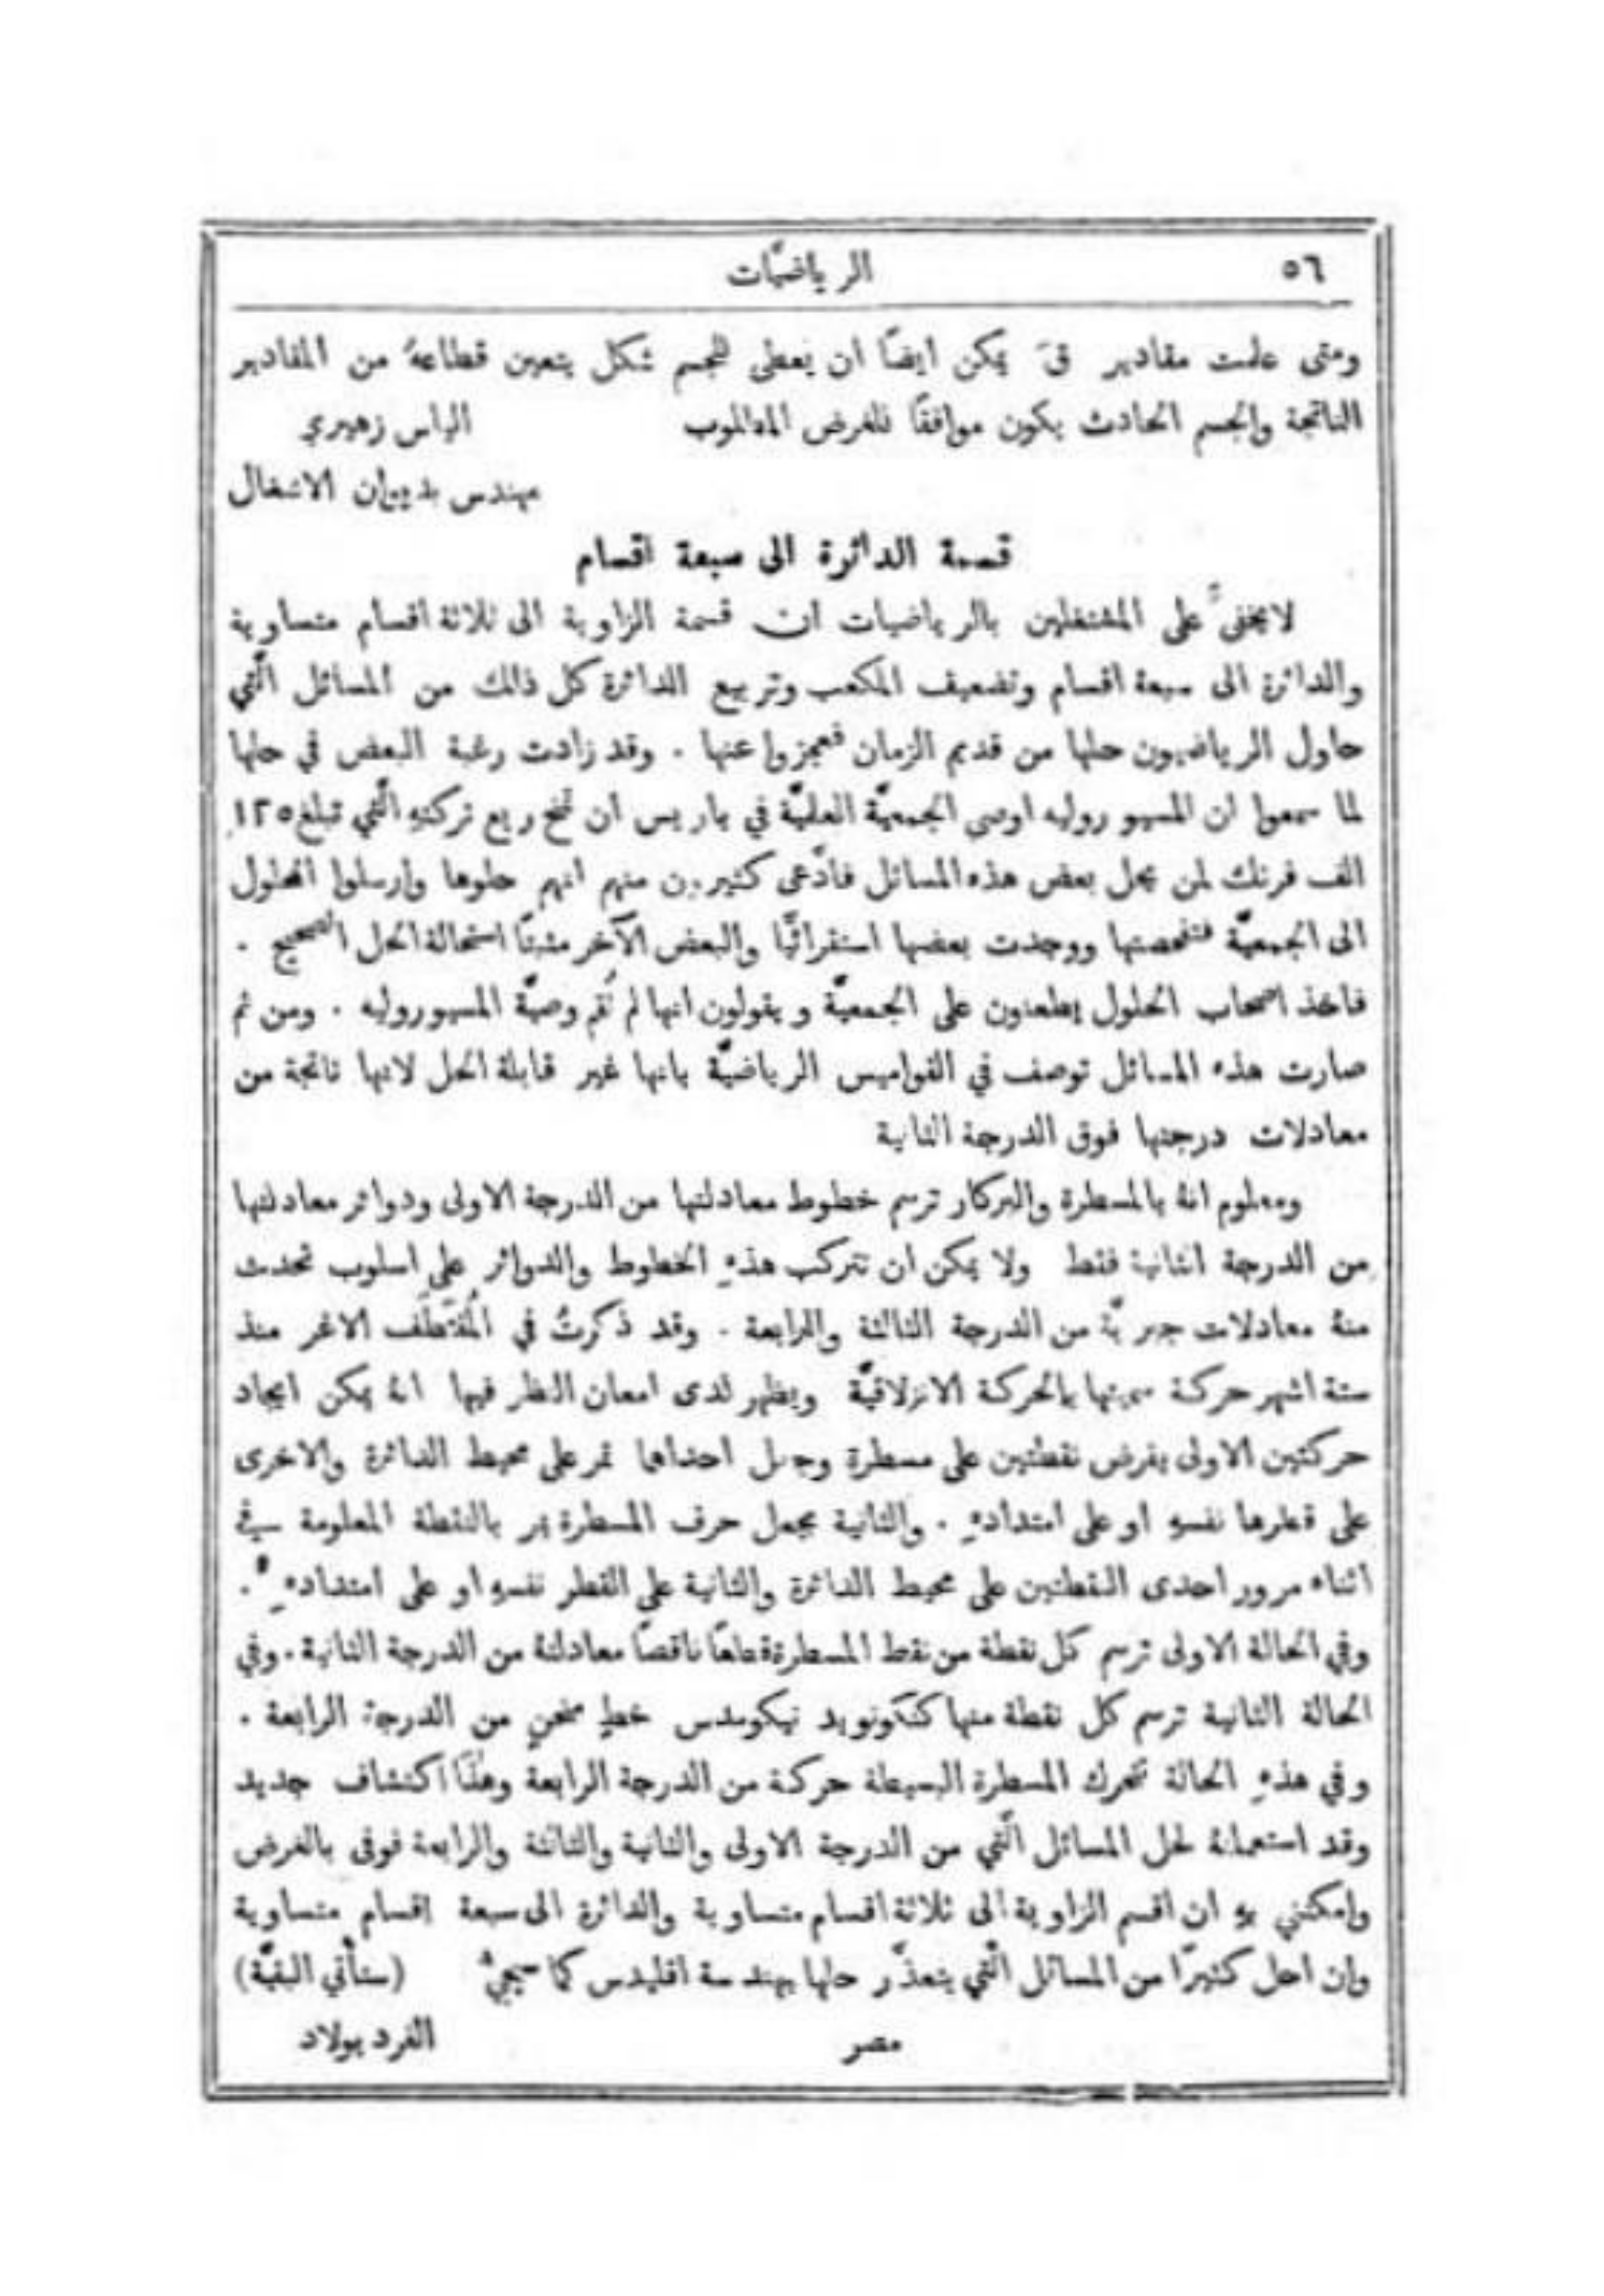 ٥٦ الرياضيَّات
ومتى علمت مقادير قَ يمكن ايضًا ان يعطى للجسم شكل يتعين قطاعهُ من المقادير
الناتجة والجسم الحادث يكون موافقًا للغرض المطلوب الياس زهيري
مهندس بديوان الاشغال
قسمة الدائرة الى سبعة اقسام
لا يخفى على المشتغلين بالرياضيات ان قسمة الزاوية الى ثلاثة اقسام متساوية
والدائرة الى سبعة اقسام وتضعيف المكعب وتربيع الدائرة كل ذالك من المسائل الَّتي
حاول الرياضيون حلها من قديم الزمان فعجزوا عنها . وقد زادت رغبة البعض في حلها
لما سمعوا ان المسيو روليه اوصى الجمعيَّة العلميَّة في باريس ان تمنح ربع تركتهِ الَّتي تبلغ ١٢٥
الف فرنك لمن يحل بعض هذه المسائل فادَّعى كثيرون منهم انهم حلوها وارسلوا الحلول
الى الجمعيَّة فتفحصتها ووجدت بعضها استقرائيًّا والبعض الآخر مثبتًا استحالة الحل الصحيح .
فاخذ اصحاب الحلول يطعنون على الجمعيَّة ويقولون انها لم تُقم وصيَّة المسيو روليه . ومن ثم
صارت هذه المسائل توصف في القواميس الرياضيَّة بانها غير قابلة الحل لانها ناتجة من
معادلات درجتها فوق الدرجة الثانية
ومعلوم انهُ بالمسطرة والبركار ترسم خطوط معادلتها من الدرجة الاولى ودوائر معادلتها
من الدرجة الثانية فقط ولا يمكن ان تتركب هذهِ الخطوط والدوائر على اسلوب تحدث
منهُ معادلات جبريَّة من الدرجة الثالثة والرابعة . وقد ذكرتُ في المُقتَطَف الاغر منذ
ستة اشهر حركة سميتها بالحركة الانزلاقيَّة ويظهر لدى امعان النظر فيها انهُ يمكن ايجاد
حركتين الاولى بفرض نقطتين على مسطرة وجعل احداهما تمر على محيط الدائرة والاخرى
على قطرها نفسهِ او على امتدادهِ . والثانية بجعل حرف المسطرة يمر بالنقطة المعلومة في
اثناء مرور احدى النقطتين على محيط الدائرة والثانية على القطر نفسهِ او على امتدادهِ .
وفي الحالة الاولى ترسم كل نقطة من نقط المسطرة قطعًا ناقصًا معادلتهُ من الدرجة الثانية . وفي
الحالة الثانية ترسم كل نقطة منها ككونويد نيكومدس خط منحنٍ من الدرجة الرابعة .
وفي هذهِ الحالة تتحرك المسطرة البسيطة حركة من الدرجة الرابعة وهذا اكتشاف جديد
وقد استعملتهُ لحل المسائل الَّتي من الدرجة الاولى والثانية والثالثة والرابعة فوفى بالغرض
وامكنني بهِ ان اقسم الزاوية الى ثلاثة اقسام متساوية والدائرة الى سبعة اقسام متساوية
وان احل كثيرًا من المسائل الَّتي يتعذَّر حلها بهندسة اقليدس كما سيجيُّ (ستأتي البقيَّة)
مصر الفرد بولاد